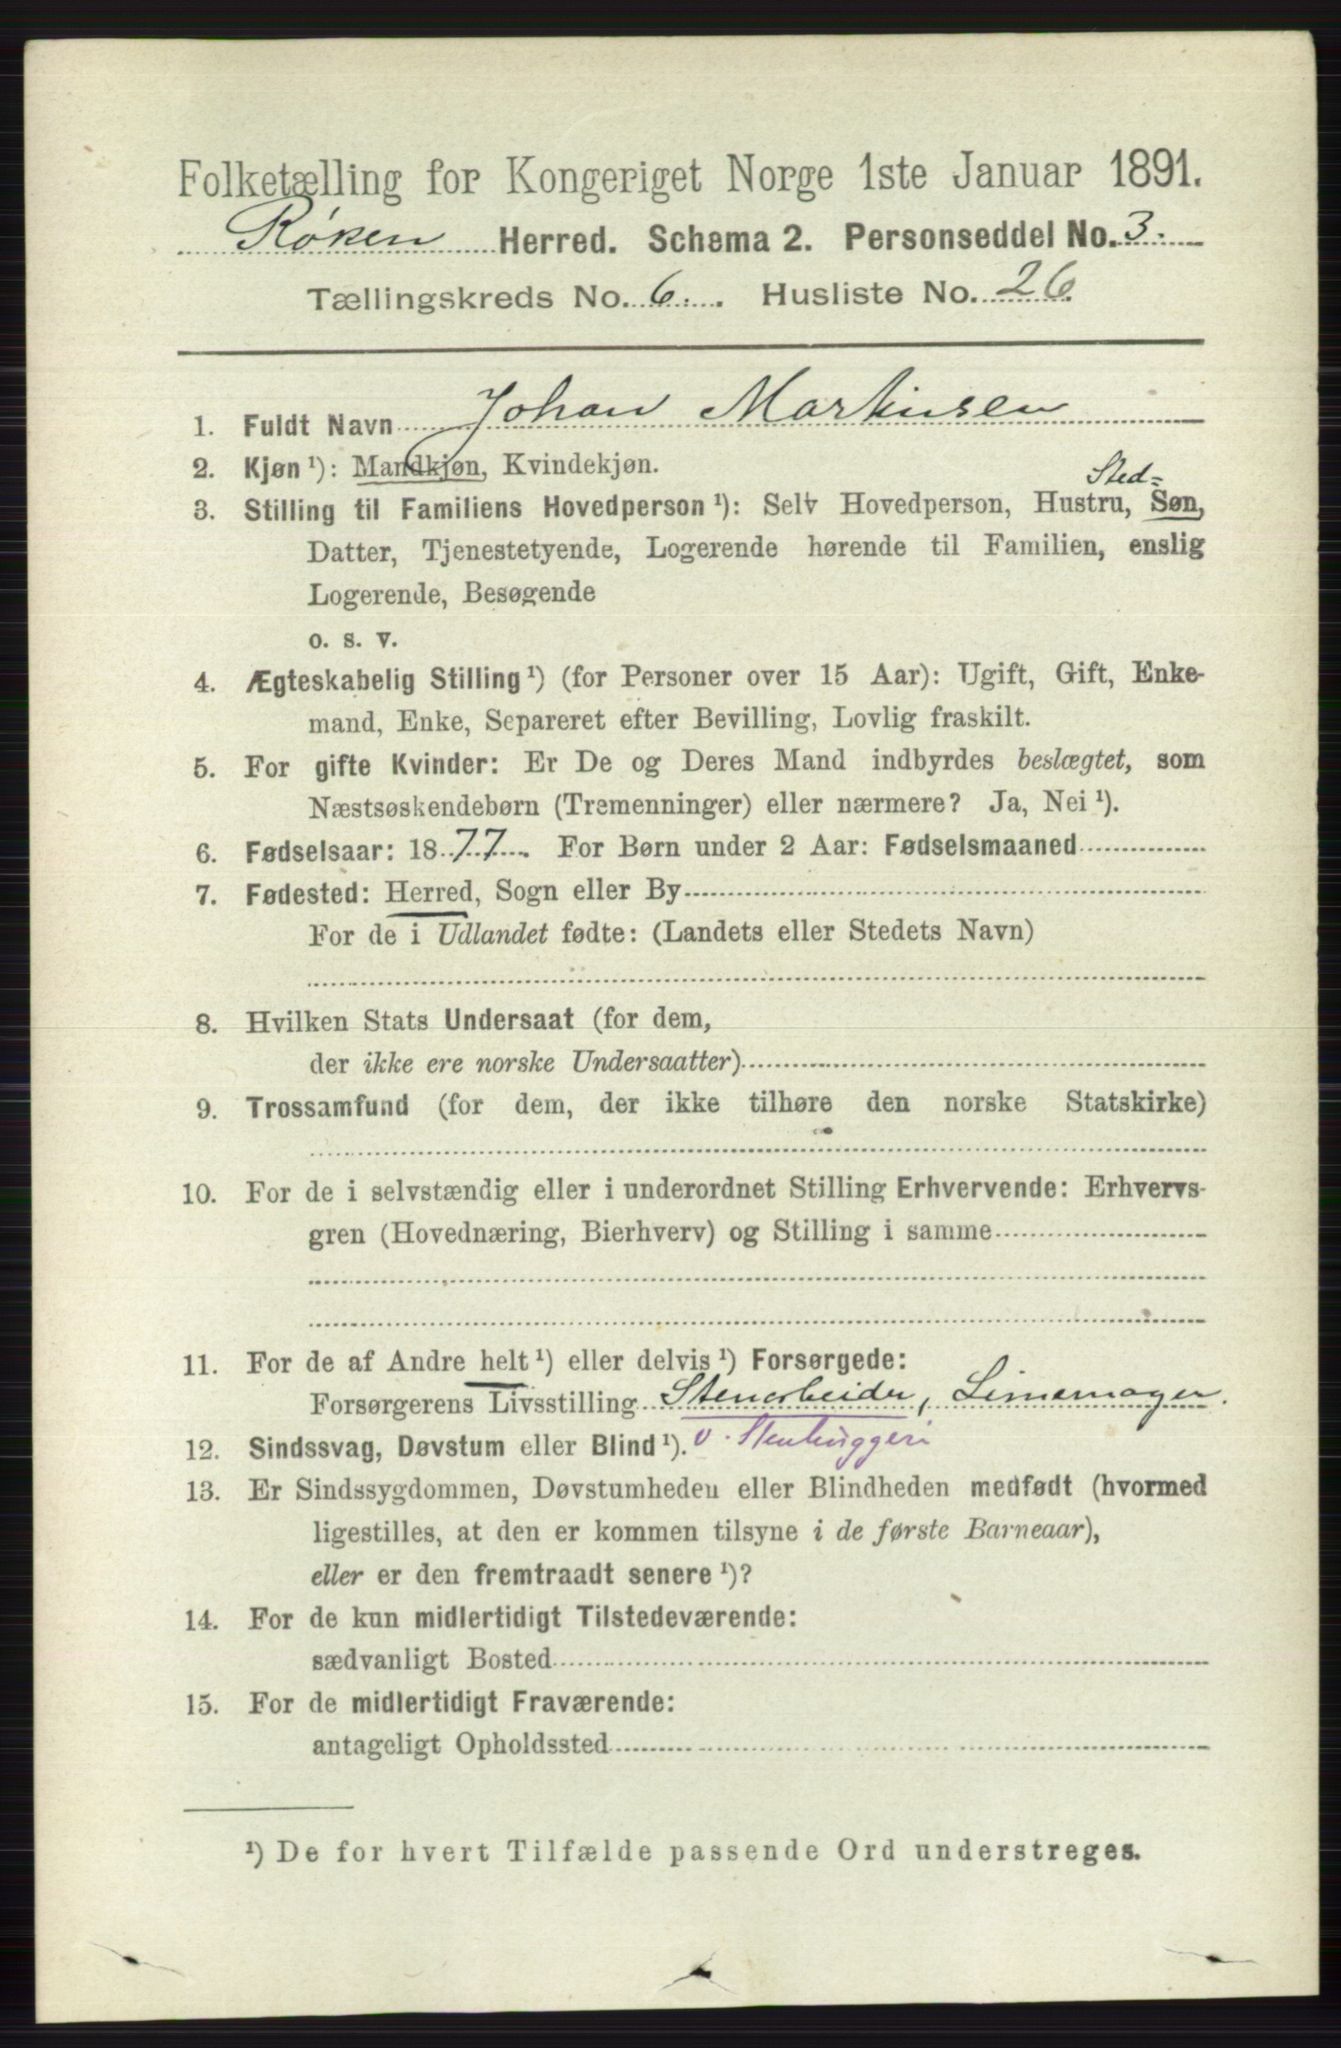 Folketælling for Kongeriget Norge 1ste Januar 1891.
Røken Herred. Schema 2. Personseddel No. 3.
Tællingskreds No. 6. Husliste No. 26
1. Fuldt Navn Johan Martinsen
2. Kjøn ¹): Mandkjøn, Kvindekjøn.
Sted-
3. Stilling til Familiens Hovedperson ¹): Selv Hovedperson, Hustru, Søn,
Datter, Tjenestetyende, Logerende hørende til Familien, enslig
Logerende, Besøgende
o. s. v.
4. Ægteskabelig Stilling ¹) (for Personer over 15 Aar): Ugift, Gift, Enke-
mand, Enke, Separeret efter Bevilling, Lovlig fraskilt.
5. For gifte Kvinder: Er De og Deres Mand indbyrdes beslægtet, som
Næstsøskendebørn (Tremenninger) eller nærmere? Ja, Nei ¹).
6. Fødselsaar: 1877. For Børn under 2 Aar: Fødselsmaaned
7. Fødested: Herred, Sogn eller By
For de i Udlandet fødte: (Landets eller Stedets Navn)
8. Hvilken Stats Undersaat (for dem,
der ikke ere norske Undersaatter)
9. Trossamfund (for dem, der ikke tilhøre den norske Statskirke)
10. For de i selvstændig eller i underordnet Stilling Erhvervende: Erhvervs-
gren (Hovednæring, Bierhverv) og Stilling i samme
11. For de af Andre helt ¹) eller delvis ¹) Forsørgede:
Forsørgerens Livsstilling Stenarbeider,
12. Sindssvag, Døvstum eller Blind ¹). v. Stenhuggeri
13. Er Sindssygdommen, Døvstumheden eller Blindheden medfødt (hvormed
ligestilles, at den er kommen tilsyne i de første Barneaar),
eller er den fremtraadt senere ¹)?
14. For de kun midlertidigt Tilstedeværende:
sædvanligt Bosted
15. For de midlertidigt Fraværende:
antageligt Opholdssted
¹) De for hvert Tilfælde passende Ord understreges.